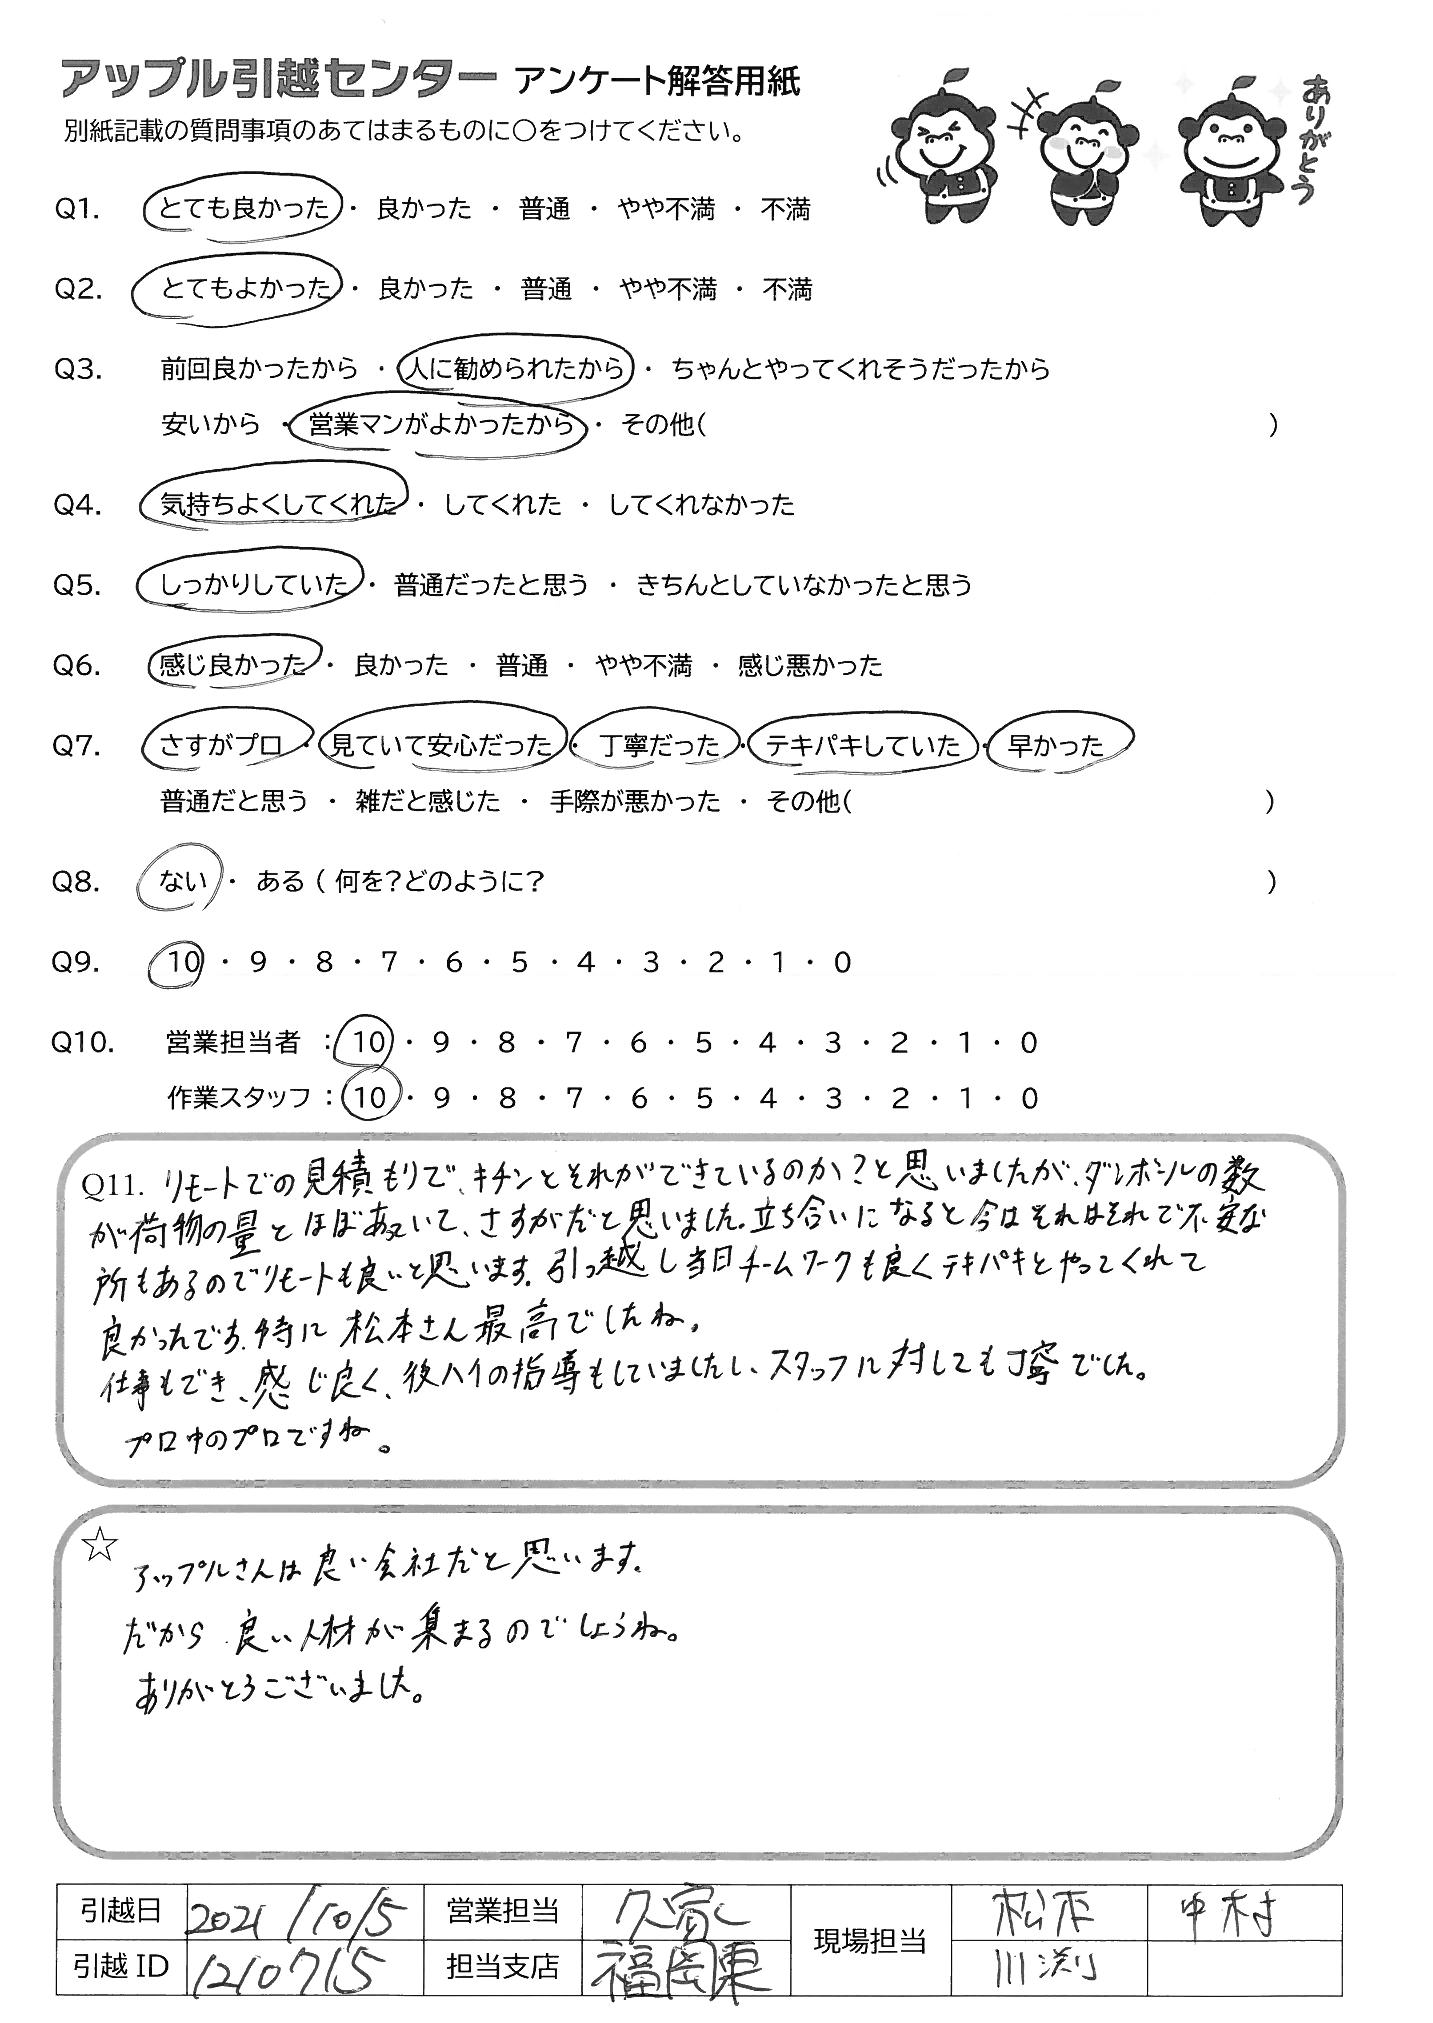 アップル引越センター アンケート解答用紙
別紙記載の質問事項のあてはまるものに○をつけてください。
ありがとう
Q1. とても良かった ・ 良かった ・ 普通 ・ やや不満 ・ 不満
Q2. とてもよかった ・ 良かった ・ 普通 ・ やや不満 ・ 不満
Q3. 前回良かったから ・ 人に勧められたから ・ ちゃんとやってくれそうだったから
安いから ・ 営業マンがよかったから ・ その他( )
Q4. 気持ちよくしてくれた ・ してくれた ・ してくれなかった
Q5. しっかりしていた ・ 普通だったと思う ・ きちんとしていなかったと思う
Q6. 感じ良かった ・ 良かった ・ 普通 ・ やや不満 ・ 感じ悪かった
Q7. さすがプロ ・ 見ていて安心だった ・ 丁寧だった ・ テキパキしていた ・ 早かった
普通だと思う ・ 雑だと感じた ・ 手際が悪かった ・ その他( )
Q8. ない ・ ある ( 何を?どのように? )
Q9. 10 ・ 9 ・ 8 ・ 7 ・ 6 ・ 5 ・ 4 ・ 3 ・ 2 ・ 1 ・ 0
Q10. 営業担当者 : 10 ・ 9 ・ 8 ・ 7 ・ 6 ・ 5 ・ 4 ・ 3 ・ 2 ・ 1 ・ 0
作業スタッフ : 10 ・ 9 ・ 8 ・ 7 ・ 6 ・ 5 ・ 4 ・ 3 ・ 2 ・ 1 ・ 0
Q11. リモートでの見積もりで、キチンとそれができているのか?と思いましたが、ダンボールの数
が荷物の量とほぼあっていて、さすがだと思いました。立ち合いになると今はそれはそれで不安な
所もあるのでリモートも良いと思います。引っ越し当日チームワークも良くテキパキとやってくれて
良かったです。特に松本さん最高でしたね。
仕事もでき、感じ良く、後ハイの指導もしていましたし、スタッフに対しても丁寧でした。
プロ中のプロですね。
☆ アップルさんは良い会社だと思います。
だから 良い人材が集まるのでしょうね。
ありがとうございました。
引越日 2021/10/5 営業担当 久家 現場担当 松本 中村
引越ID 1210715 担当支店 福岡東 川渕